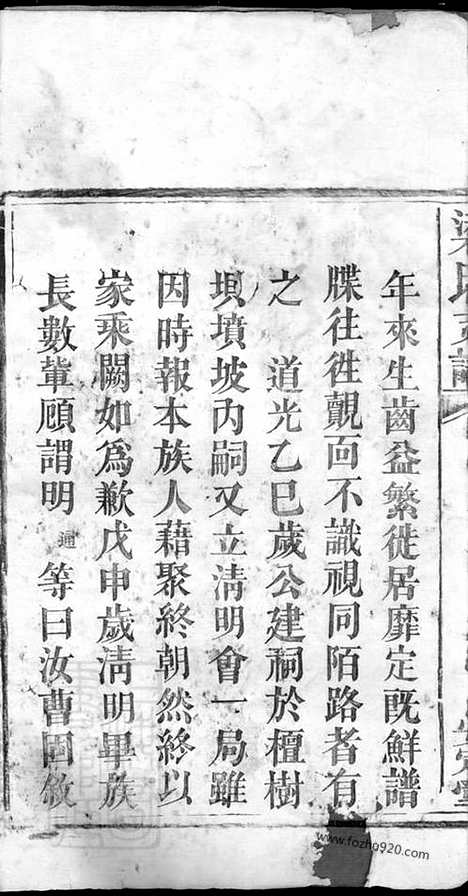 年來生齒益繁徙居靡定旣鮮譜
牒往徃覿面不識視同陌路者有
之　道光乙巳歲公建祠於檀樹
垻墳坡內嗣又立淸明會一局雖
因時報本族人藉聚終朝然終以
家乘闕如爲歉戊申歲淸明畢族
長數輩顧謂明通等曰汝曹固敘
www.fozhg920.com